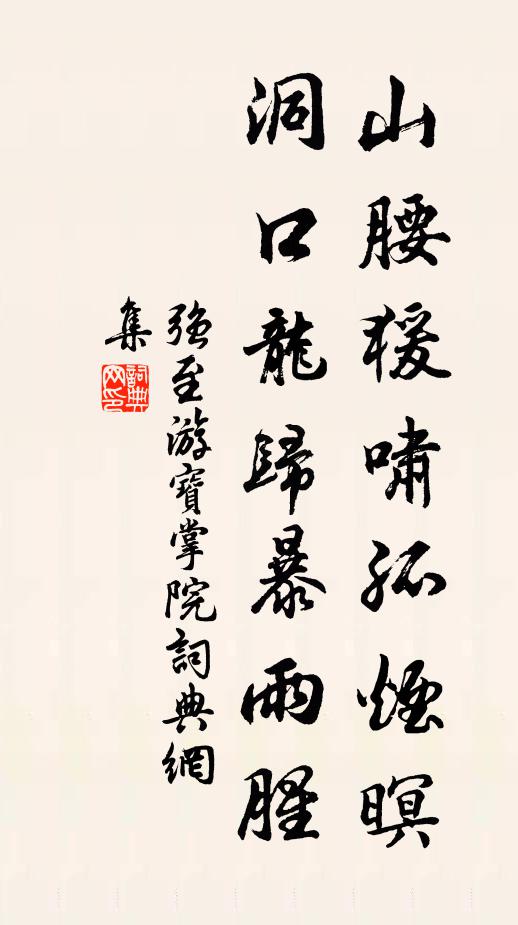 山腰猨嘯孤煙暝
洞口龍歸暴雨腥
強至游寶掌院詞典網
集
詞典网印